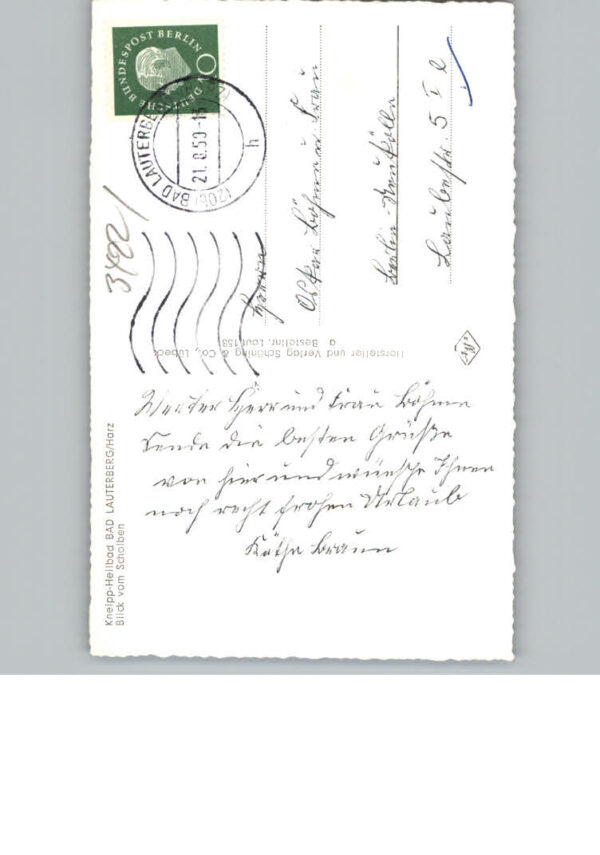 Werter Herr und Frau Böhme
sende die besten Grüße
von hier und wünsche Ihnen
noch recht frohen Urlaub
Käthe Braun
Oskar Böhme u Frau
Berlin-Neukölln
5 I l
Kneipp-Heilbad BAD LAUTERBERG/Harz
Blick vom Scholben
Hersteller und Verlag Schöning & Co., Lübeck
a Bestellnr. Laut 158
DEUTSCHE BUNDESPOST BERLIN
(20b) BAD LAUTERBERG
21.8.59-15
h